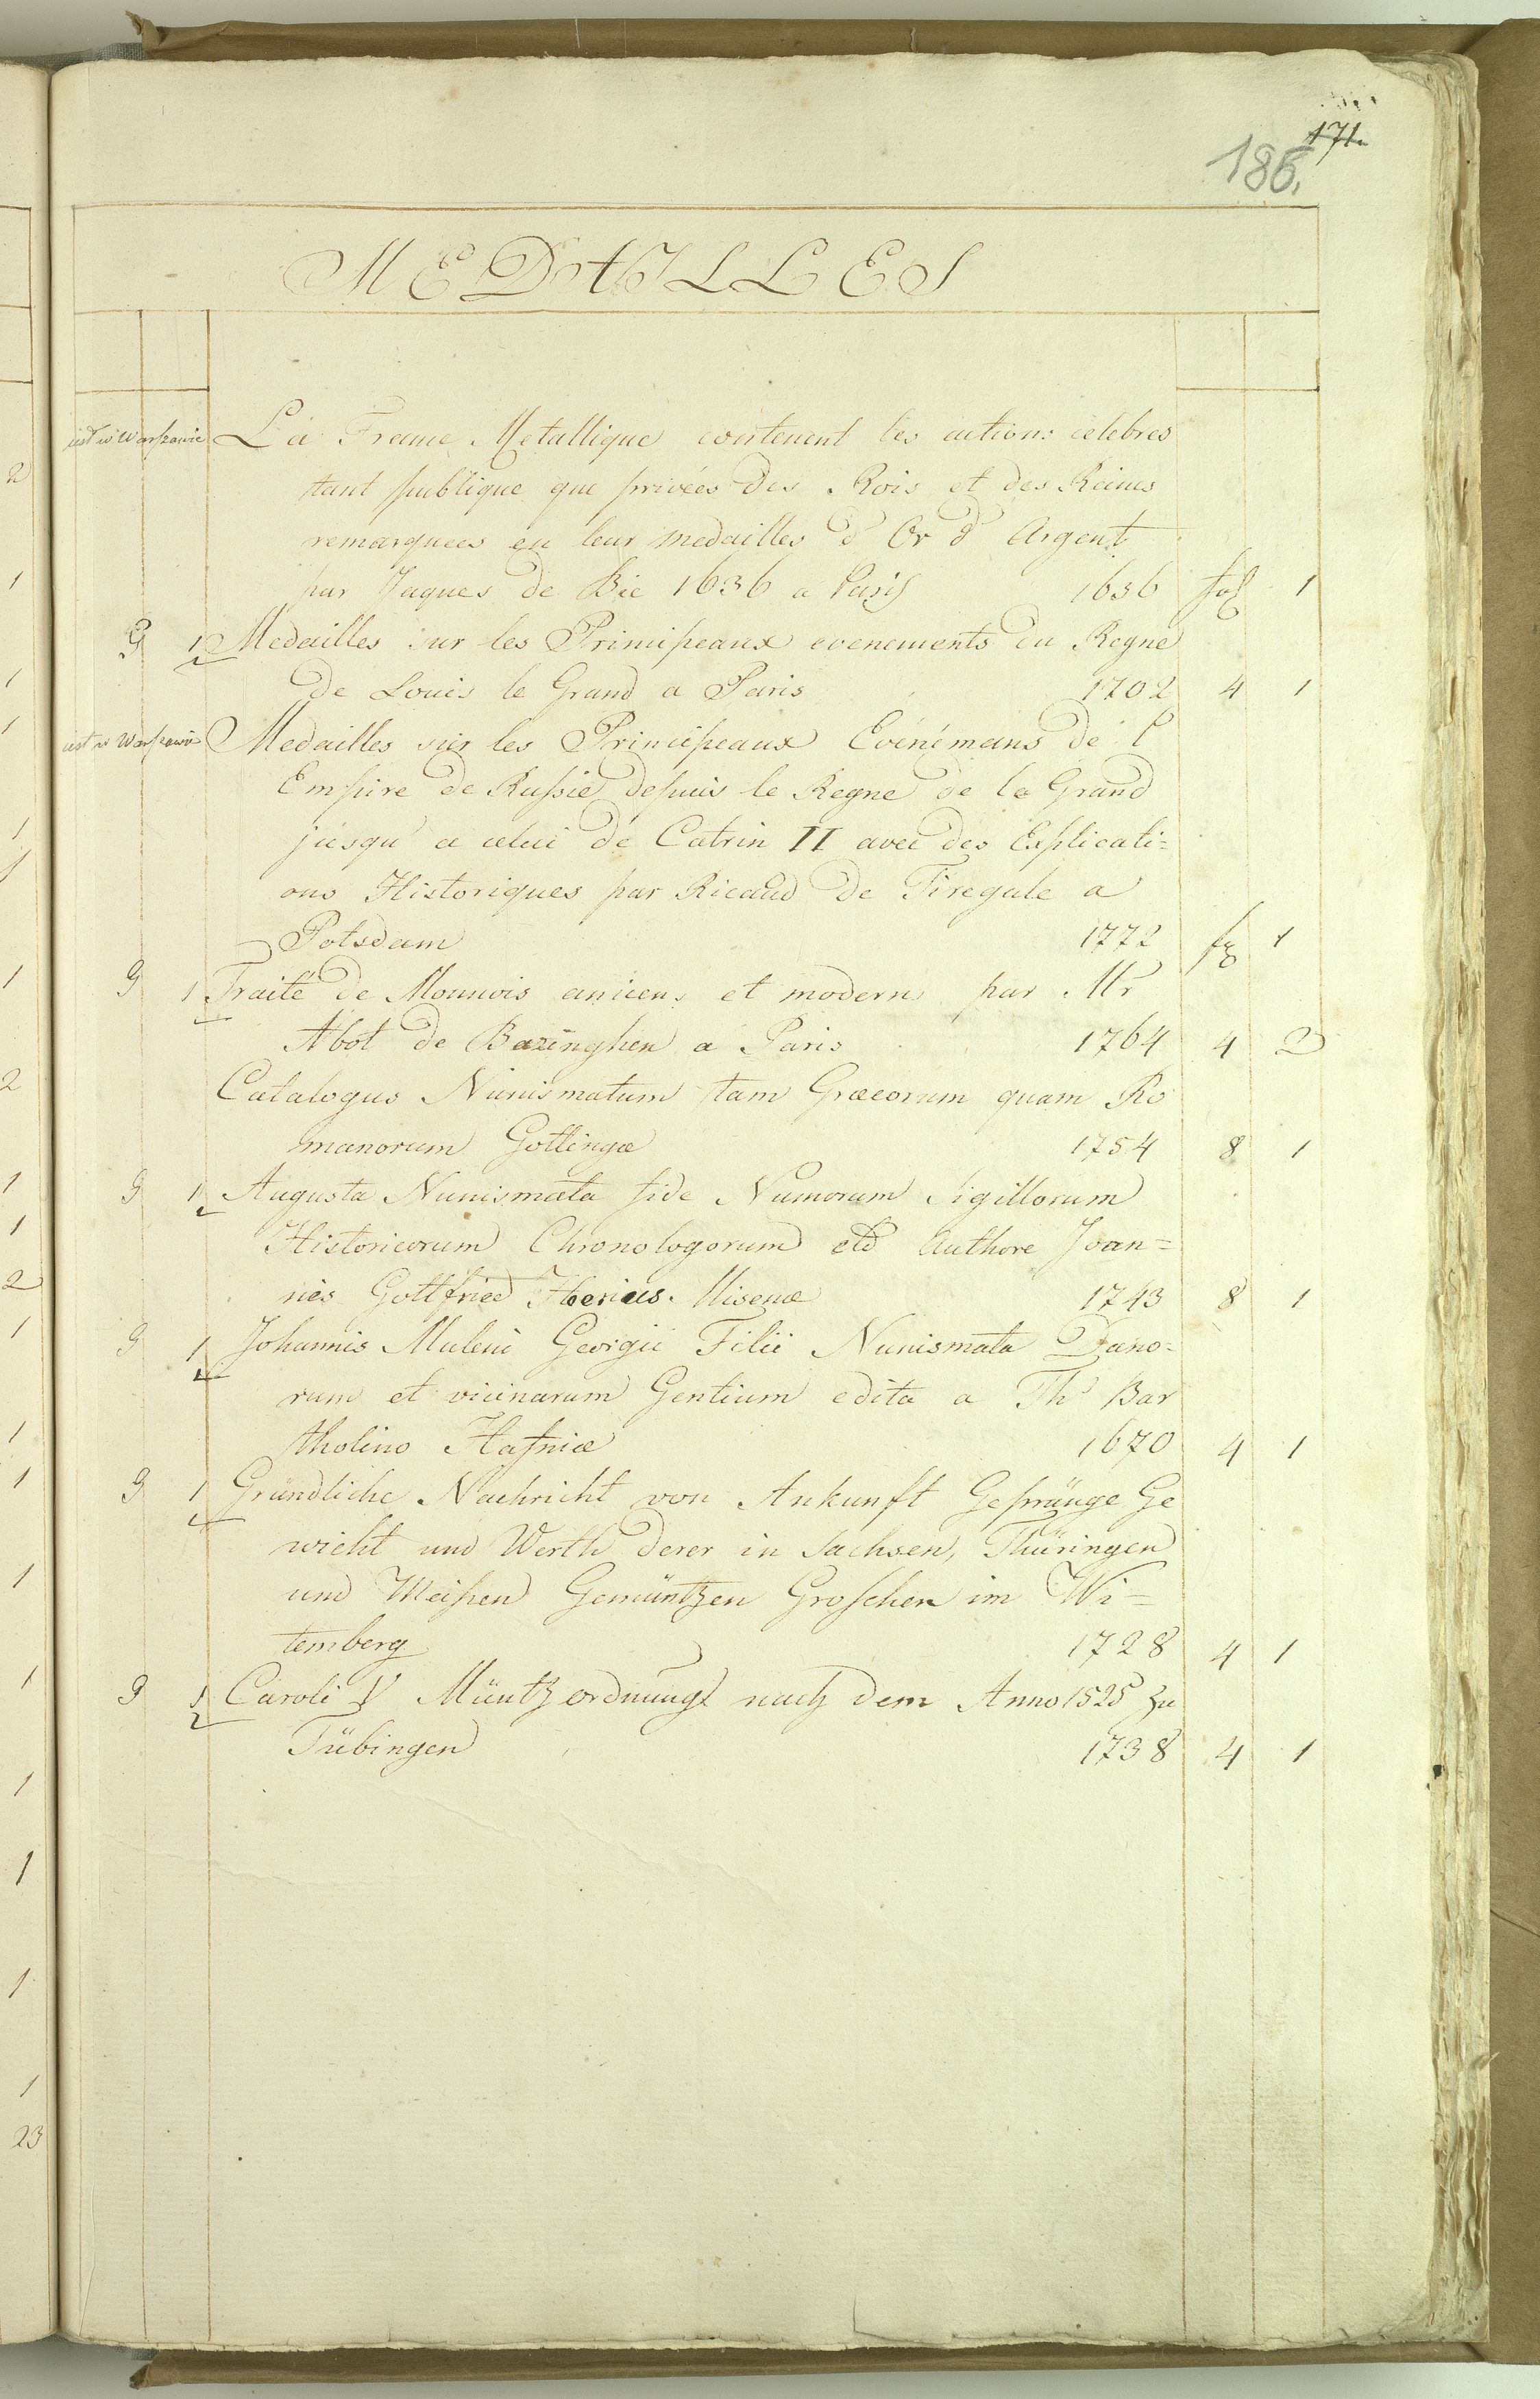 171.
186.
MEDAILLES
iest w Warszawie La France Metallique contenent les actions celebres
tant publique que privées des Rois et des Reines
remarquees en leur medailles d' Or d' Argent
par Jaques de Bie 1636 a Paris 1636 fol 1
G 1 Medailles sur les Principeaux evenements du Regne
de Louis le Grand a Paris 1702 4 1
iest w Warszawie Medailles sur les Principeaux Evénémans de l
Empire de Russie depuis le Regne de la Grand
jusqu' a celui de Catrin II avec des Explicati=
ons Historiques par Ricaud de Tiregale a
Potsdam 1772 1
9 1 Traité de Monnois anciens et moderns par Mr
Abot de Bazinghen a Paris 1764 4 2
Catalogus Numismatum tam Græcorum quam Ro
manorum Gottingæ 1754 8 1
9 1 Augusta Numismata fide Numorum Sigillorum
Historicorum Chronologorum etc Authore Joan=
nes Gottfried Misenæ 1743 8 1
9 1 Johannis Muleni Georgii Filii Numismata Dano=
rum et vicinarum Gentium edita a Th Bar
tholino Hafniæ 1670 4 1
9 1 Gründliche Nachricht von Ankunft Gepränge Ge
wicht und Werth derer in Sachsen, Thüringen
und Meißen Gemüntzen Groschen im Wi=
temberg 1728 4 1
9 1 Caroli V Müntzordnung nach dem Anno 1525 zu
Tübingen 1738 4 1
2
1
1
1
1
1
1
2
1
1
2
1
1
1
1
1
1
1
1
1
23